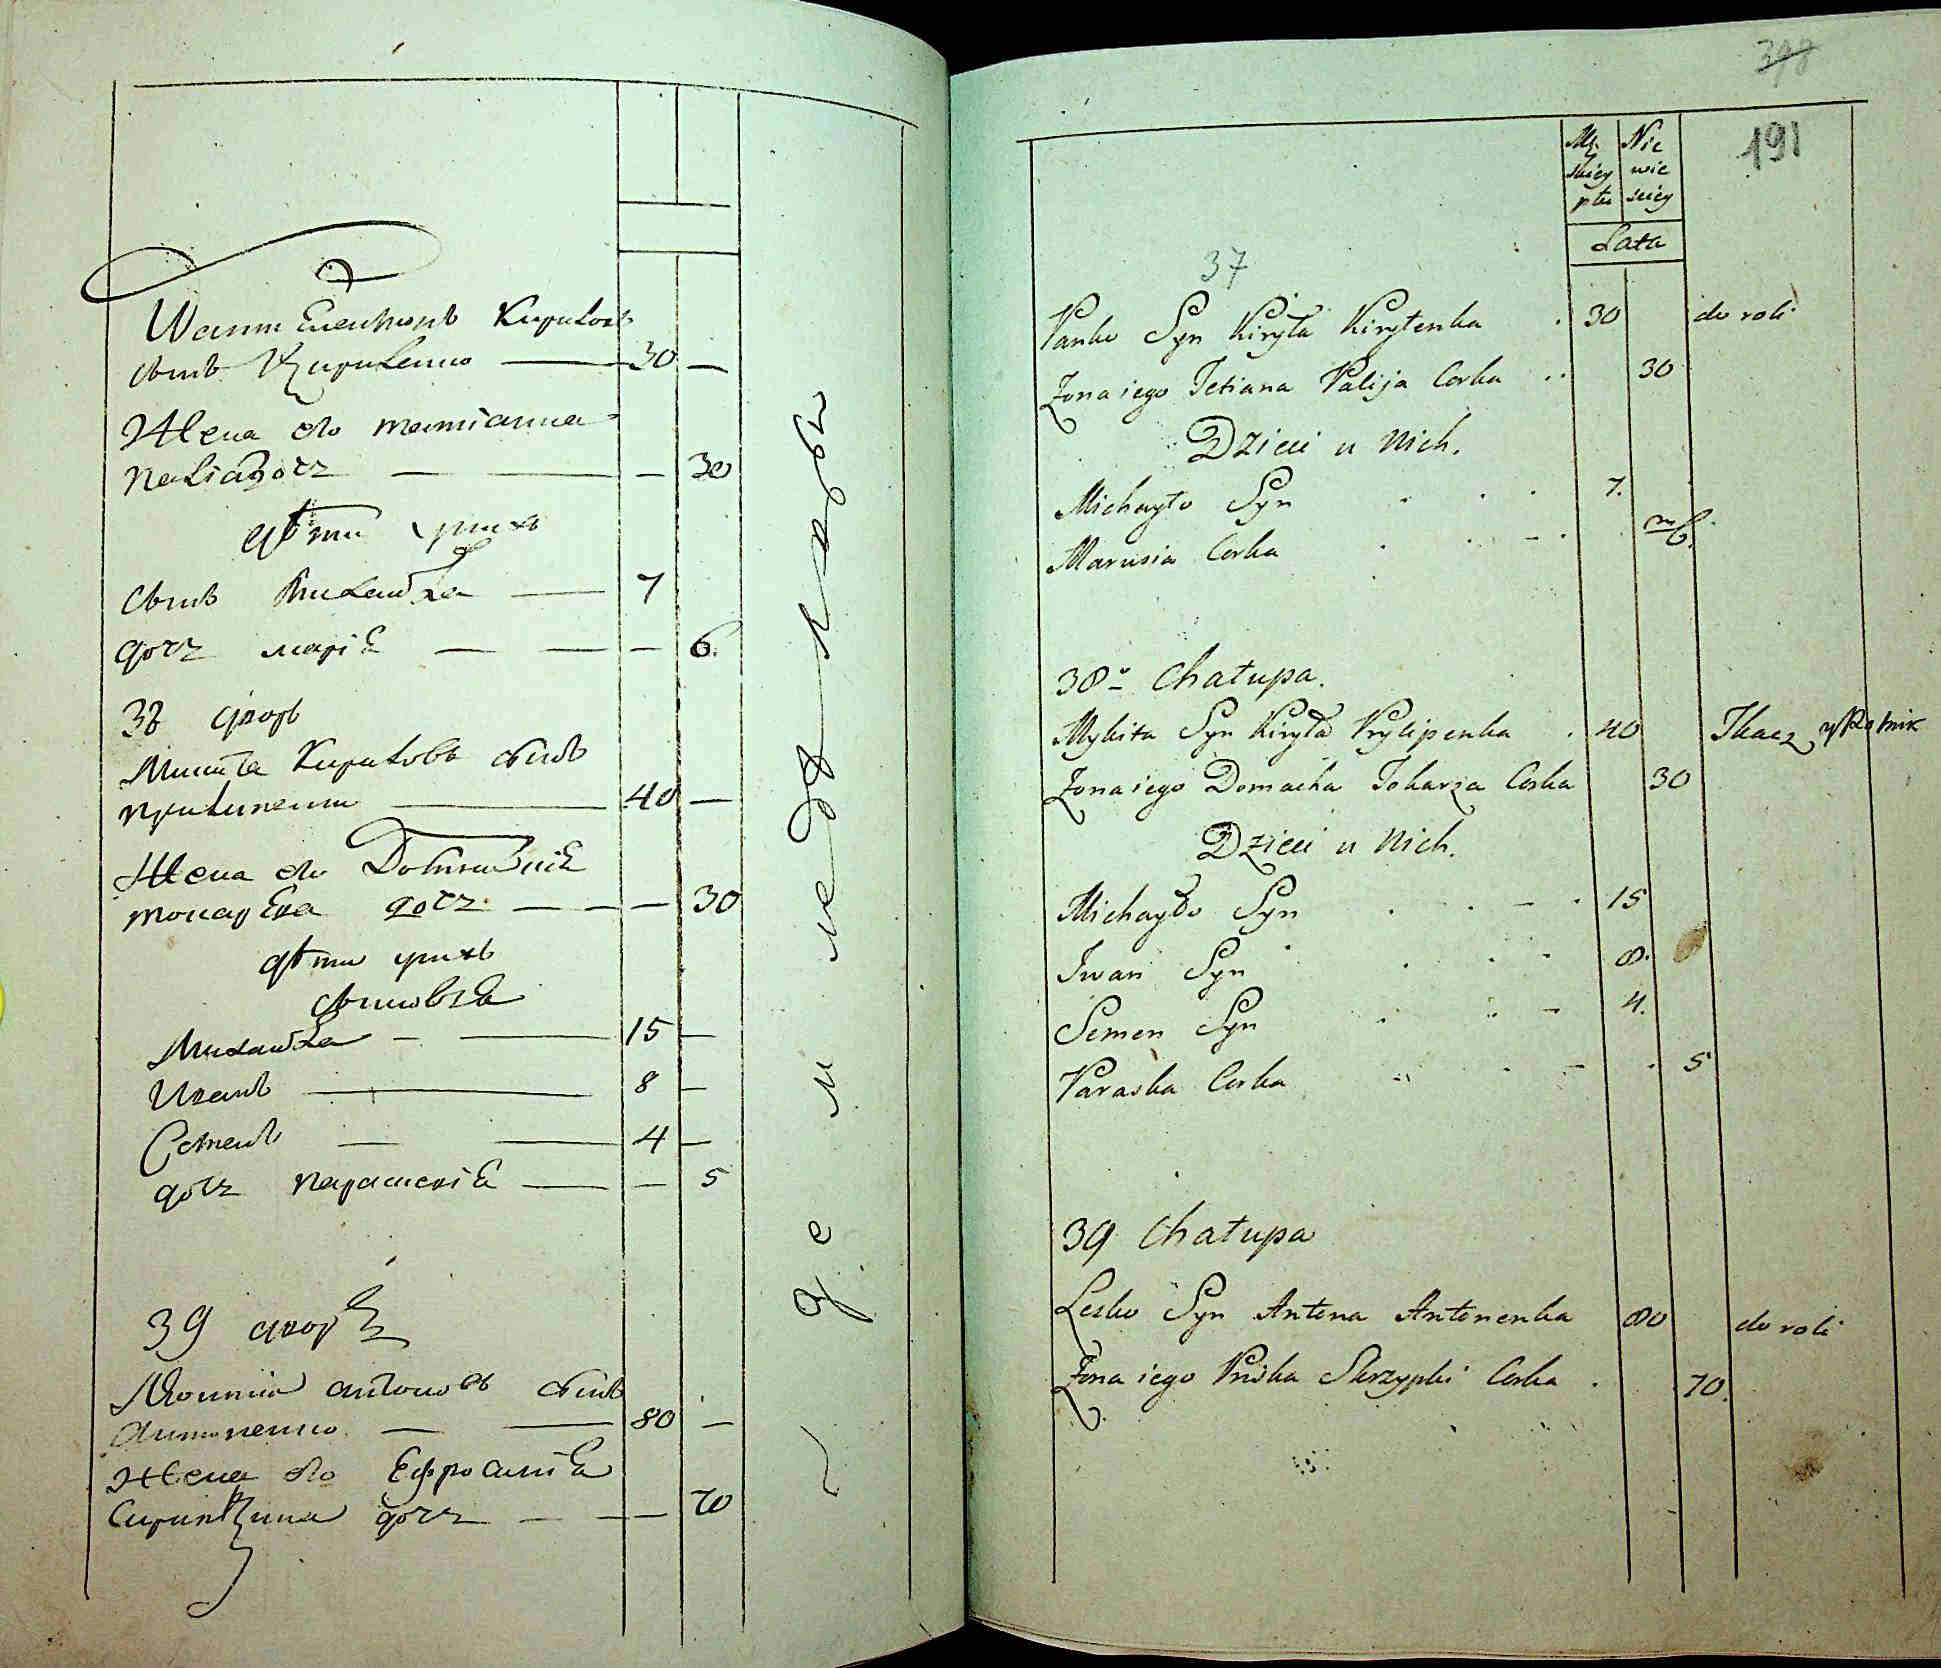 Кирилов
сынъ Кириленко — 30 —
Жена его татианна
Палѣа дочь — — 30
дѣти у нихъ
сынъ Михаила — 7
дочь марія — — — 6.
38 дворъ
Микита Кириловъ сынъ
прилипенко — 40 —
Жена его Домникія
токарева дочь — — — 30
дѣти у нихъ
сыновья
Михайла — — 15 —
Иванъ — 8 —
Семенъ — — 4 —
дочь параскевія — — 5
39 дворъ
антоновъ сынъ
антоненко — — 80 —
Жена его Ефросинія
Скрипчина дочь — — — 70
398
191
Mę skiey płci
Nie wie sciey
Lata
37
Panko Syn Kiryła Kirylenka . 30 do roli
Zona iego Tetiana Palija Corka .. 30
Dzieci u Nich.
Michayło Syn . . . 7.
Marusia Corka . . - . 6.
38a Chałupa.
Mykita Syn Kiryła Prylipenka . 40 Tkacz y Rolnik
Zona iego Domacha Tokarza Corka 30
Dzieci u Nich.
Michayło Syn . . - . 15
Iwan Syn . . - 8.
Semen Syn . . - 4.
Paraska Corka . . - . 5
39 Chałupa
Lesko Syn Antona Antonenka 80 do roli
Zona iego Pryska Skrzypki Corka . 70.